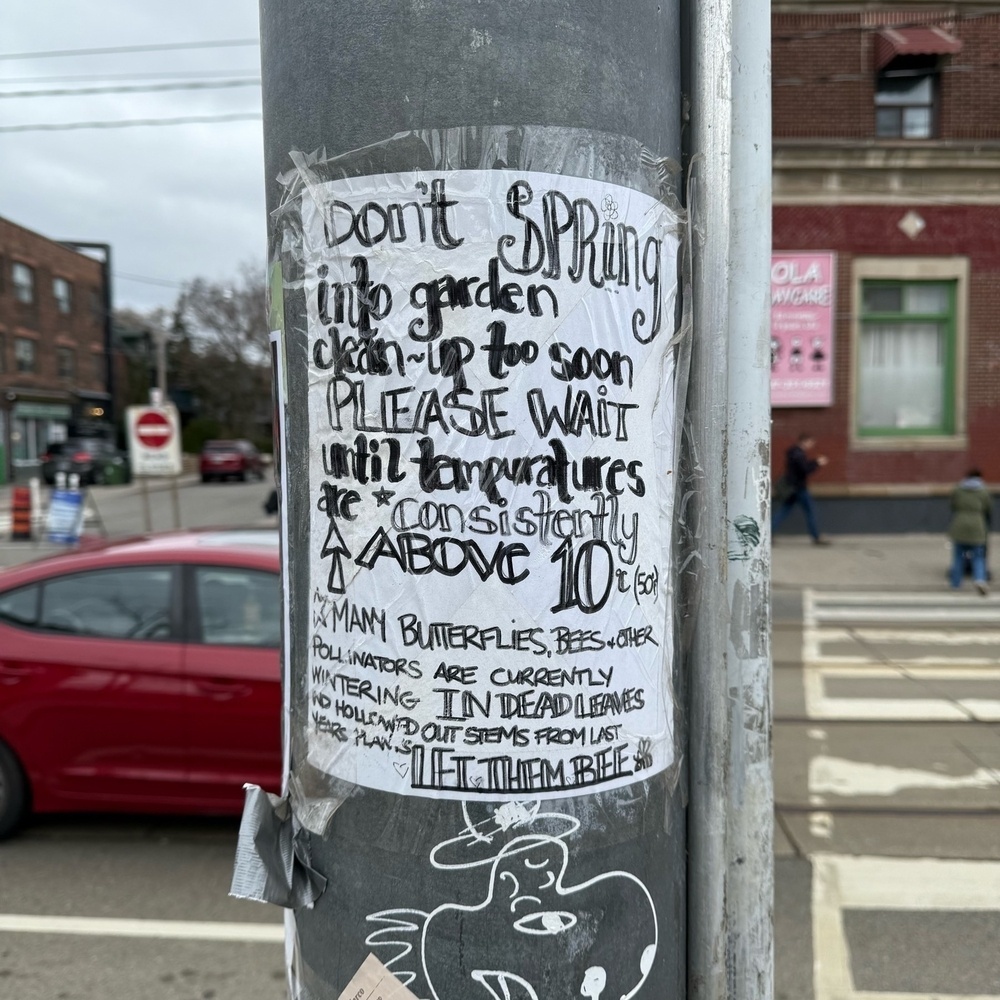 Don't SPRing
into garden
clean~up too soon
PLEASE WAiT
until tempuratures
are *consistently
ABOVE 10°c (50F)
MANY BUTTERFLIES, BEES + OTHER
POLLiNATORS ARE CURRENTLY
WINTERING IN DEAD LEAVES
AND HOLLOWED OUT STEMS FROM LAST
YEARS PLANTS
LET THEM BEE
OLA